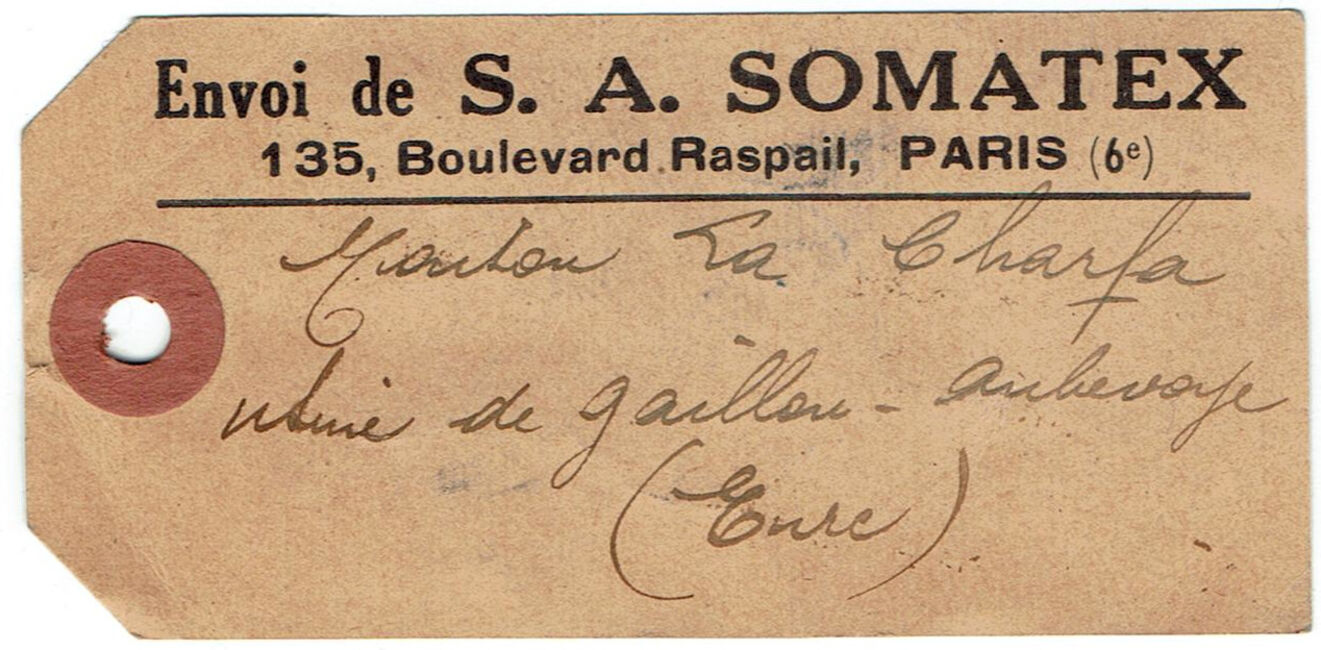 Envoi de S. A. SOMATEX
135, Boulevard Raspail, PARIS (6e)
Mouton La Charfa
usine de gaillon - aubevoye
(Eure)